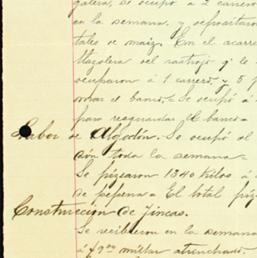 galera, se ocupó á 2 carrero
en la semana, y depositaron
tales de maiz. En el acarre
del rastrojo q' le
ocuparon á 1 carrero, y 5 p
el banco. Se ocupó á
para resguardar el banco.
Labor de Algodón. Se ocupó al
ción toda la semana.
Se pizcaron 1340 kilos á
de pepena. El total piz
Construccion de Fincas.
Se recibieron en la semana
á millar atrinchado.